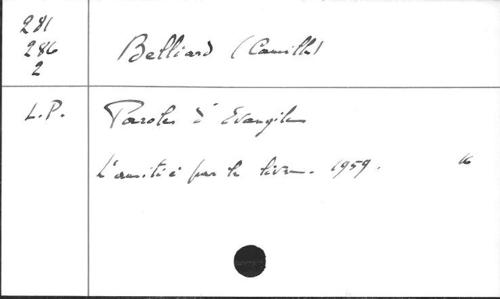 281
286
2
Belliard (Camille)
L.P.
Paroles d'Evangiles
L'amitié par le livre. 1959. 16